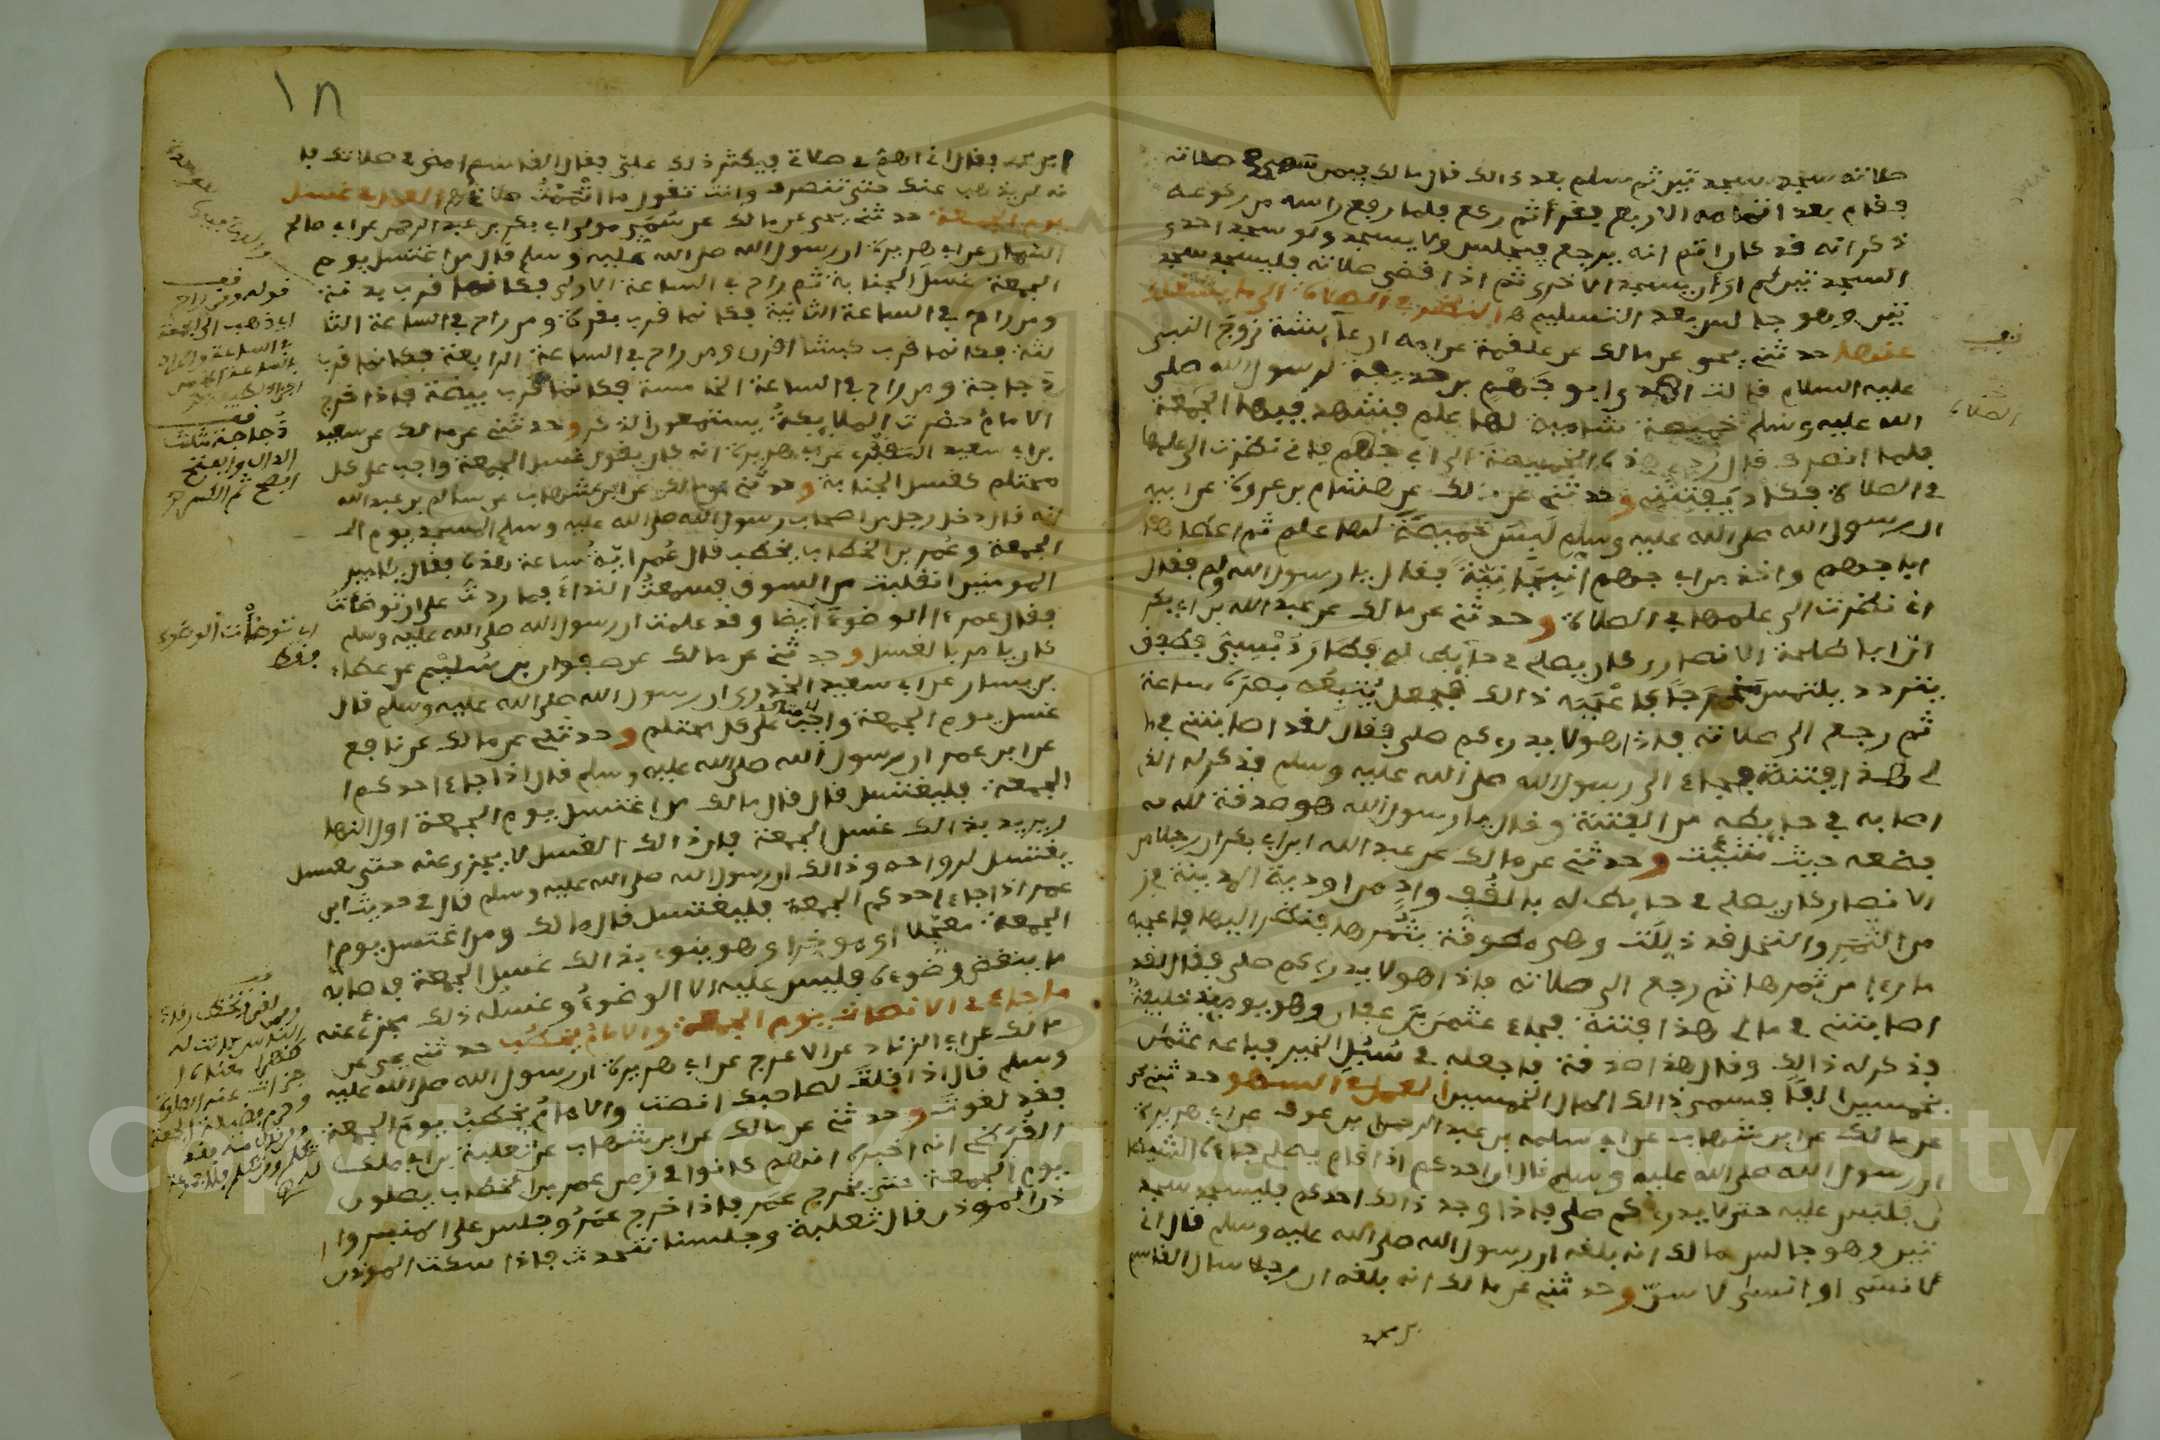 صلاته سجد سجدتين ثم سلم بعد ذالك قال مالك فيمن سهى في صلاته
وقام بعد اتمامه الاربع فقرأ ثم ركع فلما رفع راسه من ركوعه
ذكر انه قد كان اتم انه يرجع فيجلس ولا يسجد ولو سجد احدى
السجدتين لم ار أن يسجد الاخرى ثم اذا قضى صلاته فليسجد سجد
تين وهو جالس بعد التسليم النظر في الصلاة الى ما يشغلك
عنها حدثني يحيى عن مالك عن علقمة عن امه ان عآيشة زوج النبي
عليه السلام قالت اهدى ابو جهم بن حذيفة لرسول الله صلى
الله عليه وسلم خميصة شامية لها علم فشهد فيها الجمعة
فلما انصرف قال ردي هذه الخميصة الى ابي جهم فاني نظرت الى علمها
في الصلاة فكاد يفتنني وحدثني عن مالك عن هشام بن عروة عن ابيه
ان رسول الله صلى الله عليه وسلم لبس خميصة لها علم ثم اعطاها
ابا جهم واخذ من ابي جهم انبجانية فقال يا رسول الله ولم فقال
اني نظرت الى علمها في الصلاة وحدثني عن مالك عن عبد الله بن ابي بكر
ان ابا طلحة الانصاري كان يصلي في حايط له فطار دبسي فطفق
يتردد يلتمس مخرجا فاعجبه ذالك فجعل يتبعه بصره ساعة
ثم رجع الى صلاته فاذا هو لا يدري كم صلى فقال لقد اصابتني في ما
لي هذا فتنة فجاء الى رسول الله صلى الله عليه وسلم فذكر له الذي
اصابه في حايطه من الفتنة وقال يا رسول الله هو صدقة لله
فضعه حيث شئت وحدثني عن مالك عن عبد الله ابن ابي بكر ان رجلا من
الانصار كان يصلي في حايط له بالقف واد من اودية المدينة في ز
من الثمر والنخل قد ذللت وهي مطوقة بثمرها فنظر اليها فاعجبه
ما رءا من ثمرها ثم رجع الى صلاته فاذا هو لا يدري كم صلى فقال لقد
اصابتني في مالي هذا فتنة فجاء عثمن بن عفان وهو يوميذ خليفة
فذكر له ذالك وقال هذا صدقة فاجعله في سبل الخير فباعه عثمن
بخمسين الفا فسمي ذالك المال الخمسين العمل في السهو حدثني يحيى
عن مالك عن ابن شهاب عن ابي سلمه بن عبد الرحمن بن عوف عن ابي هريرة
ان رسول الله صلى الله عليه وسلم قال ان احدكم اذا قام يصلي جاءه الشيطا
ن فلبس عليه حتى لا يدري كم صلى فاذا وجد ذالك احدكم فليسجد سجد
تين وهو جالس مالك انه بلغه ان رسول الله صلى الله عليه وسلم قال اني
لانسى او انسى لاسن وحدثني عن مالك انه بلغه ان رجلا سال القاسم
بن محمد
الصلاة
١٨
ابن محمد فقال اني اهم في صلاتي فيكثر ذلك علي فقال القاسم امض في صلاتك فا
نه لن يذهب عنك حتى تنصرف وانت تقول ما اتممت صلاتي العمل في غسل
يوم الجمعة حدثني يحيى عن مالك عن سمي مولى ابي بكر بن عبد الرحمن عن ابي صالح
السمان عن ابي هريرة ان رسول الله صلى الله عليه وسلم قال من اغتسل يوم
الجمعة غسل الجنابة ثم راح في الساعة الاولى فكانما قرب بدنة
ومن راح في الساعة الثانية فكانما قرب بقرة ومن راح في الساعة الثا
لثة فكانما قرب كبشا اقرن ومن راح في الساعة الرابعة فكانما قرب
دجاجة ومن راح في الساعة الخامسة فكانما قرب بيضة فاذا خرج
الامام حضرت الملايكة يستمعون الذكر وحدثني عن مالك عن سعيد
بن ابي سعيد المقبري عن ابي هريرة انه كان يقول غسل الجمعة واجب على كل
محتلم كغسل الجنابة وحدثني عن مالك عن ابن شهاب عن سالم بن عبد الله
انه قال دخل رجل من اصحاب رسول الله صلى الله عليه وسلم المسجد يوم
الجمعة وعمر بن الخطاب يخطب فقال عمر اية ساعة هذه فقال يا امير
المومنين انقلبت من السوق فسمعت النداء فما زدت على ان توضأت
فقال عمر ءالوضوء أيضا وقد علمت ان رسول الله صلى الله عليه وسلم
كان يامر بالغسل وحدثني عن مالك عن صفوان بن سليم عن عطاء
بن يسار عن ابي سعيد الخدري ان رسول الله صلى الله عليه وسلم قال
غسل يوم الجمعة واجب على كل محتلم وحدثني عن مالك عن نافع
عن ابن عمر ان رسول الله صلى الله عليه وسلم قال اذا جاء احدكم ا
لجمعة فليغتسل قال قال مالك من اغتسل يوم الجمعة اول النها
ر يريد بذالك غسل الجمعة فان ذالك الغسل لا يجزي عنه حتى يغتسل
يغتسل لرواحه وذالك ان رسول الله صلى الله عليه وسلم قال في حديث ابن
عمر اذا جاء احدكم الجمعة فليغتسل قال مالك ومن اغتسل يوم ا
لجمعة معجلا او موخرا وهو ينوي بذالك غسل الجمعة فاصابه
ما ينقض وضوءه فليس عليه الا الوضوء وغسله ذلك مجزئ عنه
ما جاء في الانصات يوم الجمعة والامام يخطب حدثني يحيى عن
مالك عن ابي الزناد عن الاعرج عن ابي هريرة ان رسول الله صلى الله عليه
وسلم قال اذا قلت لصاحبك انصت والامام يخطب يوم الجمعة
فقد لغوت وحدثني عن مالك عن ابن شهاب عن ثعلبة بن ابي ملك
القرظي انه اخبره انهم كانوا في زمن عمر بن الخطاب يصلون
يوم الجمعة حتى يخرج عمر فاذا خرج عمر وجلس على المنبر وا
ذن الموذن قال ثعلبة وجلسنا نتحدث فاذا سكت الموذن
قوله ومن راح
اي ذهب الى الجمعة
دجاجة مثلث
الدال والفتح
افصح ثم الكسر
اي توضأت الوضوء
فقط